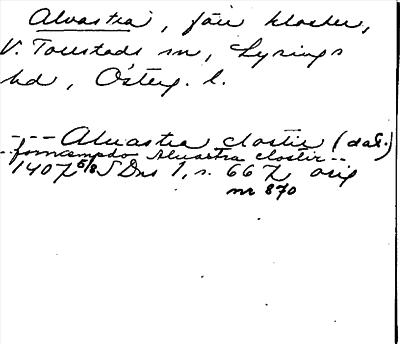 Alvastra, förr kloster,
V. Tollstads sn, Lysings
hd, Österg. l.
--- Alvastra closter (dat.)
-- fornempdo Alvastra closter --
1407 5/8 SDns 1, s. 667 orig
nr 870